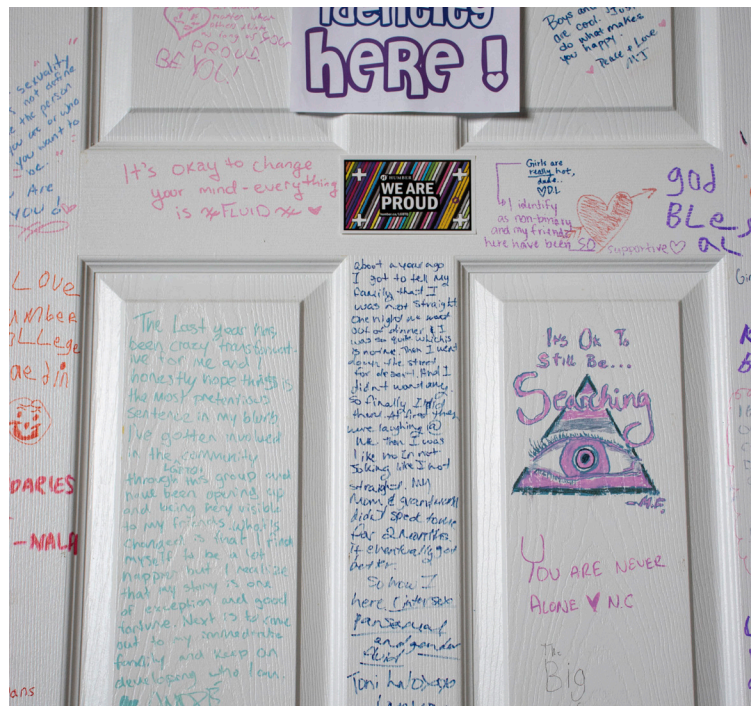 identity
here!
PROUD.
BE YOU!
Boys and
are cool. Just
do what makes
you happy.
Peace & Love
MJ
sexuality
not define
the person
you are or who
you want to
be.
Are
YOU!
It's okay to change
your mind - everything
is FLUID
HUMBER
WE ARE
PROUD
Girls are
really hot,
dude..
DL
I identify
as non-binary
and my friends
here have been SO
supportive
god
BLes
aL
LOVE
The Last year has
been crazy transformat-
ive for me and I
honestly hope this is
the most pretentious
sentence in my blurb
I've gotten involved
in the community
through this group and
have been opening up
and being very visible
to my friends. What's
changed is that I find
myself to be a lot
happier but I realize
that my story is one
of exception and good
fortune. Next is to come
out to my immediate
family and keep on
developing who I am.
about a year ago
I got to tell my
family that I
was not straight
one night we went
out of dinner & I
was so quite which
is not me. Then I went
down the street
for desert. And I
didn't want any.
So finally I told
them. At first they
were laughing @
me. Then I was
like no Im not
Joking like I'm not
straight. My
mom & grandma
didn't speak to me
for 2 months.
it eventually got
better.
So now I
here intersex
Pansexual
and gender
fluid
Toni
It's OK To
Still Be...
Searching
-M.F.
DARIES
-NALA
YOU ARE NEVER
ALONE N.C
The
Big